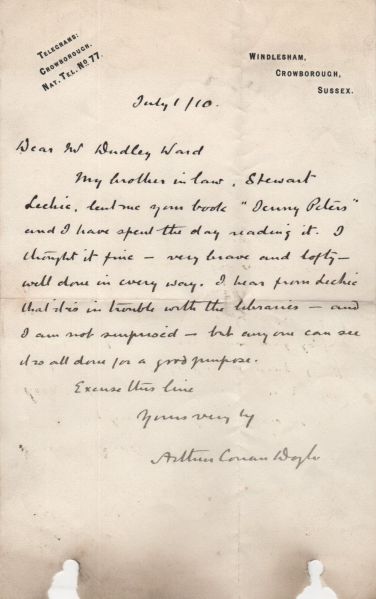 TELEGRAMS:
CROWBOROUGH.
NAT. TEL. No 77.
WINDLESHAM,
CROWBOROUGH,
SUSSEX.
July 1/10.
Dear Mr Dudley Ward
My brother in law, Stewart
Leckie, lent me your book "Jenny Peters"
and I have spent the day reading it. I
thought it fine – very brave and lofty –
well done in every way. I hear from Leckie
that it is in trouble with the libraries – and
I am not surprised – but any one can see
it is all done for a good purpose.
Excuse this line
Yours very ty
Arthur Conan Doyle